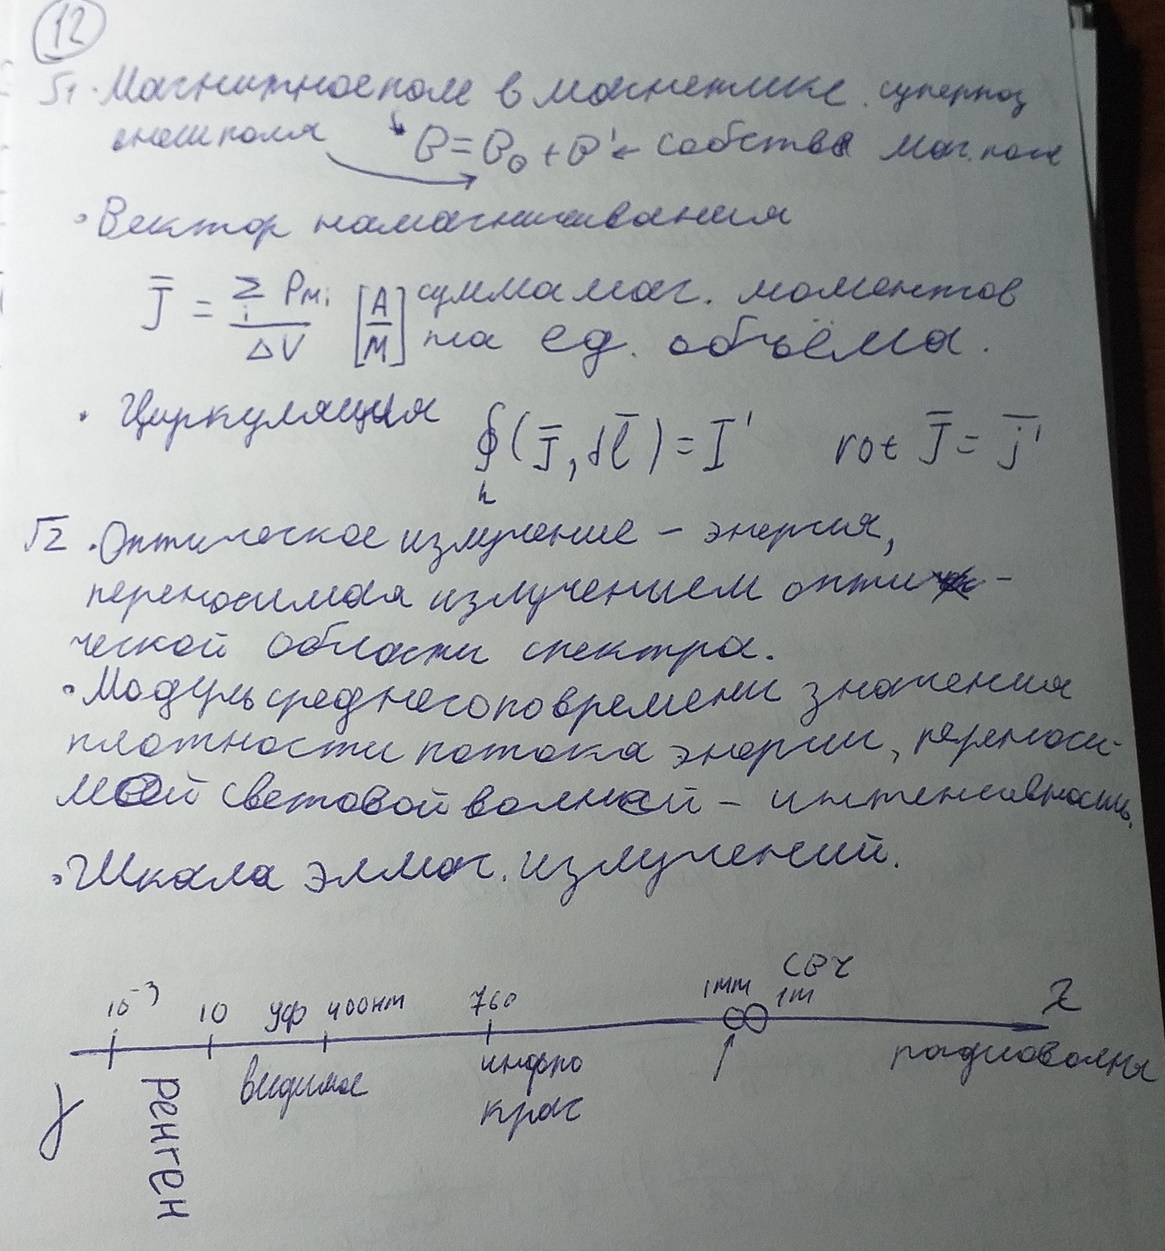 12
√1. Магнитное поле в магнетике. суперпоз
внеш поля B = B₀ + B' ← собств мог. поле
• Вектор намагничивания
J̄ = Σi Pmi / ΔV [A/M] сумма маг. моментов
на ед. объёма.
• Циркуляция ∮(J̄, dl̄) = I' rot J̄ = j̄'
√2. Оптическое излучение – энергия,
переносимая излучением опти-
ческой области спектра.
• Модуль среднего по времени значения
плотности потока энергии, переноси-
мой световой волной – интенсивность.
• Шкала элмаг. излучений.
СВЧ
10⁻³ 10 УФ 400нм 760 1мм 1m λ
γ ренген видимое инфро радиоволны
крас